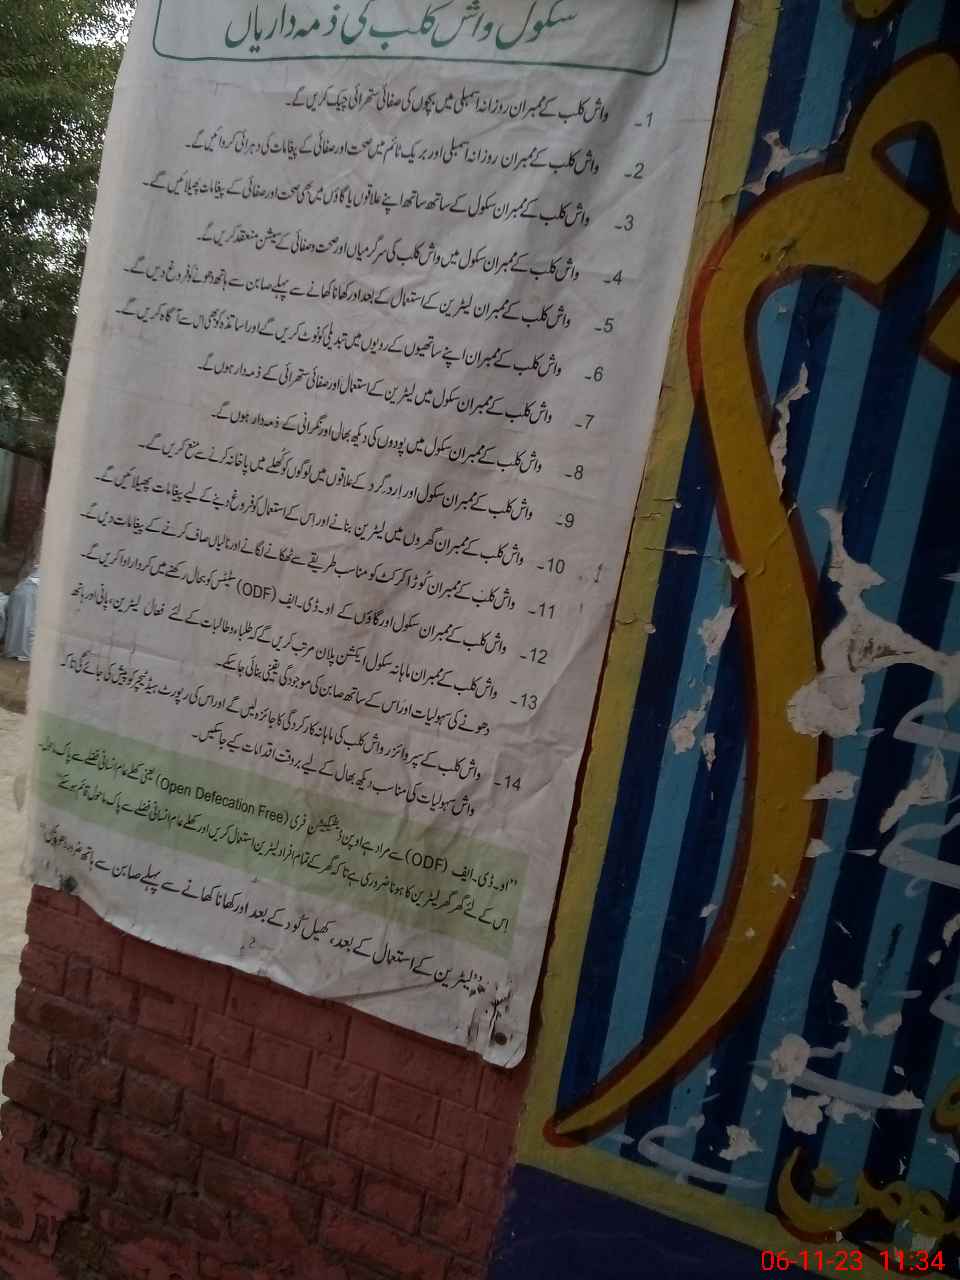 سکول واش کلب کی ذمہ داریاں
1۔ واش کلب کے ممبران روزانہ اسمبلی میں بچوں کی صفائی ستھرائی چیک کریں گے۔
2۔ واش کلب کے ممبران روزانہ اسمبلی اور بریک ٹائم میں صحت اور صفائی کے پیغامات کی دہرائی کروائیں گے۔
3۔ واش کلب کے ممبران سکول کے ساتھ ساتھ اپنے علاقوں یا گاؤں میں بھی صحت اور صفائی کے پیغامات پھیلائیں گے۔
4۔ واش کلب کے ممبران سکول میں واش کلب کی سرگرمیاں اور صحت و صفائی کے سیشن منعقد کریں گے۔
5۔ واش کلب کے ممبران لیٹرین کے استعمال کے بعد اور کھانا کھانے سے پہلے صابن سے ہاتھ دھونے کو فروغ دیں گے۔
6۔ واش کلب کے ممبران اپنے ساتھیوں کے رویوں میں تبدیلی کو نوٹ کریں گے اور اساتذہ کو بھی اس سے آگاہ کریں گے۔
7۔ واش کلب کے ممبران سکول میں لیٹرین کے استعمال اور صفائی ستھرائی کے ذمہ دار ہوں گے۔
8۔ واش کلب کے ممبران سکول میں پودوں کی دیکھ بھال اور نگرانی کے ذمہ دار ہوں گے۔
9۔ واش کلب کے ممبران سکول اور اردگرد کے علاقوں میں لوگوں کو کھلے میں پاخانہ کرنے سے منع کریں گے۔
10۔ واش کلب کے ممبران گھروں میں لیٹرین بنانے اور اس کے استعمال کو فروغ دینے کے لیے پیغامات پھیلائیں گے۔
11۔ واش کلب کے ممبران کوڑا کرکٹ کو مناسب طریقے سے ٹھکانے لگانے اور نالیاں صاف کرنے کے پیغامات دیں گے۔
12۔ واش کلب کے ممبران سکول اور گاؤں کے او۔ڈی۔ایف (ODF) سٹیٹس کو بحال رکھنے میں کردار ادا کریں گے۔
13۔ واش کلب کے ممبران ماہانہ سکول ایکشن پلان مرتب کریں گے کہ طلباء و طالبات کے لئے فعال لیٹرین، پانی اور ہاتھ
دھونے کی سہولیات اور اس کے ساتھ صابن کی موجودگی یقینی بنائی جا سکے۔
14۔ واش کلب کے سپروائزر واش کلب کی ماہانہ کارکردگی کا جائزہ لیں گے اور اس کی رپورٹ ہیڈ ٹیچر کو پیش کی جائے گی تاکہ
واش سہولیات کی مناسب دیکھ بھال کے لیے بروقت اقدامات کیے جا سکیں۔
"او۔ڈی۔ایف (ODF) سے مراد ہے اوپن ڈیفیکیشن فری (Open Defecation Free) یعنی کھلے عام انسانی فضلے سے پاک ماحول۔
اس کے لئے گھر گھر لیٹرین کا ہونا ضروری ہے تاکہ گھر کے تمام افراد لیٹرین استعمال کریں اور کھلے عام انسانی فضلے سے پاک ماحول قائم ہو سکے"
"لیٹرین کے استعمال کے بعد، کھیل کود کے بعد اور کھانا کھانے سے پہلے صابن سے ہاتھ ضرور دھوئیں"
2
06-11-23 11:34